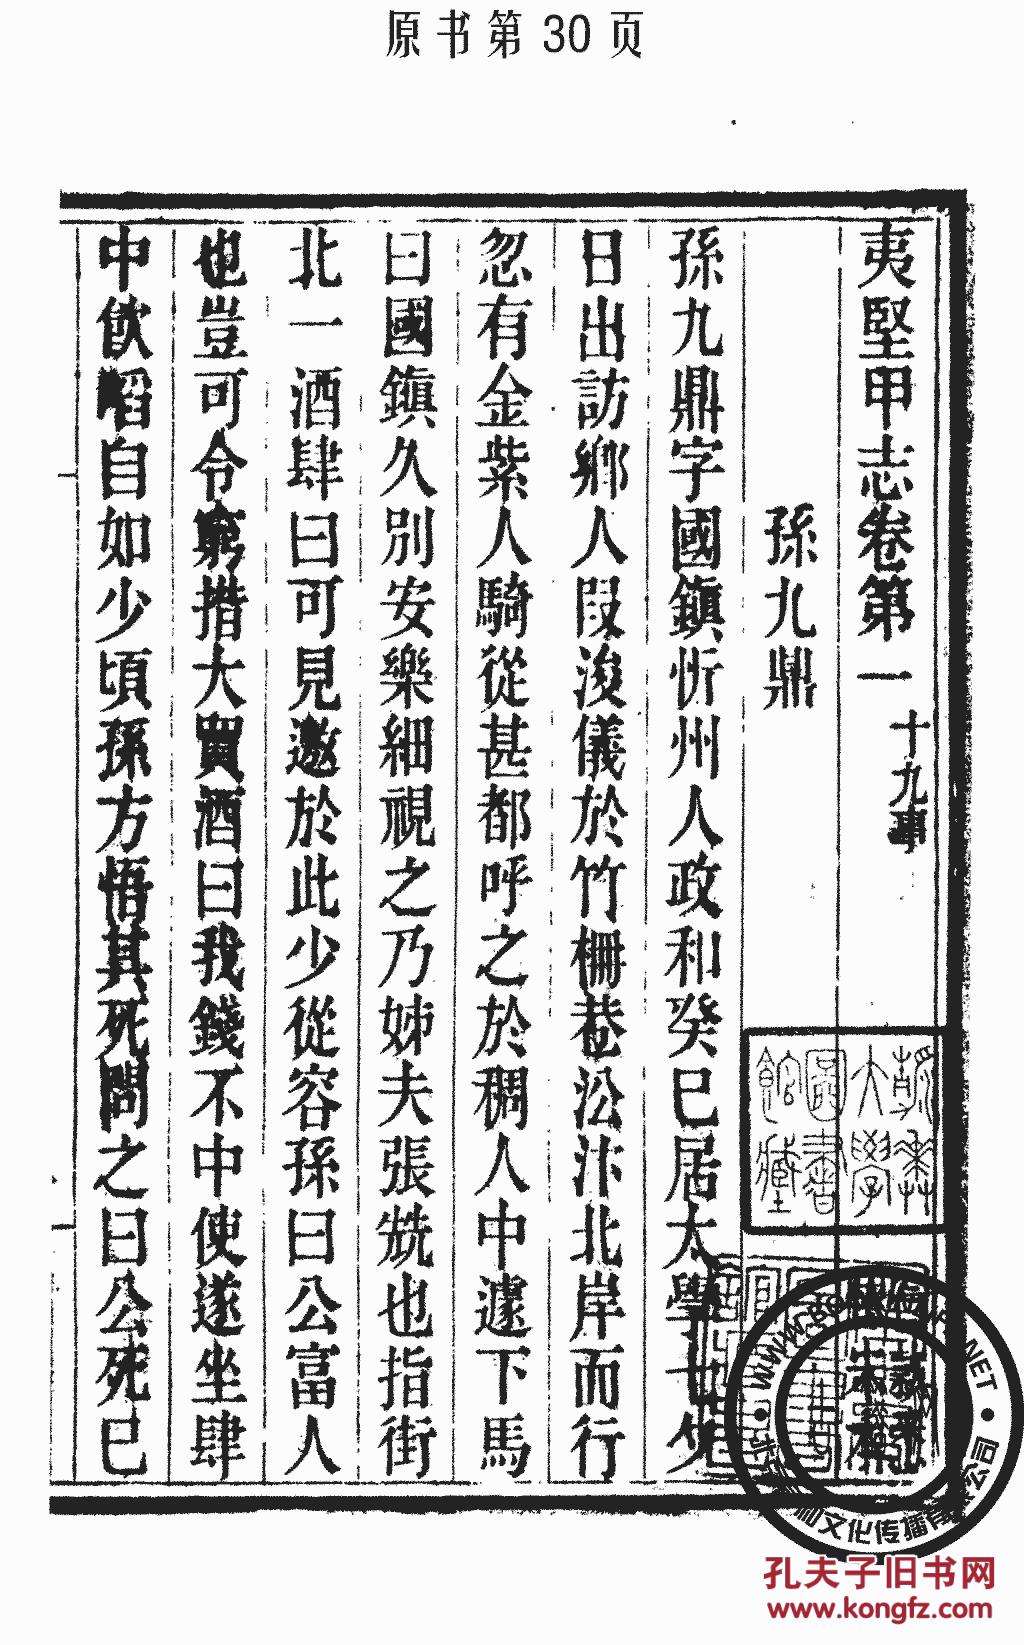 原书第30页
夷堅甲志卷第一 十九事
孫九鼎
孫九鼎字國鎮忻州人政和癸巳居太學七夕
日出訪鄉人段浚儀於竹柵巷沿汴北岸而行
忽有金紫人騎從甚都呼之於稠人中遽下馬
曰國鎮久別安樂細視之乃姊夫張兟也指街
北一酒肆曰可見邀於此少從容孫曰公富人
也豈可令窮措大買酒曰我錢不中使遂坐肆
中飲啗自如少頃孫方悟其死問之曰公死已
朝鮮大學圖書館藏
WWW
.NET
文化传播有 公司
孔夫子旧书网
www.kongfz.com